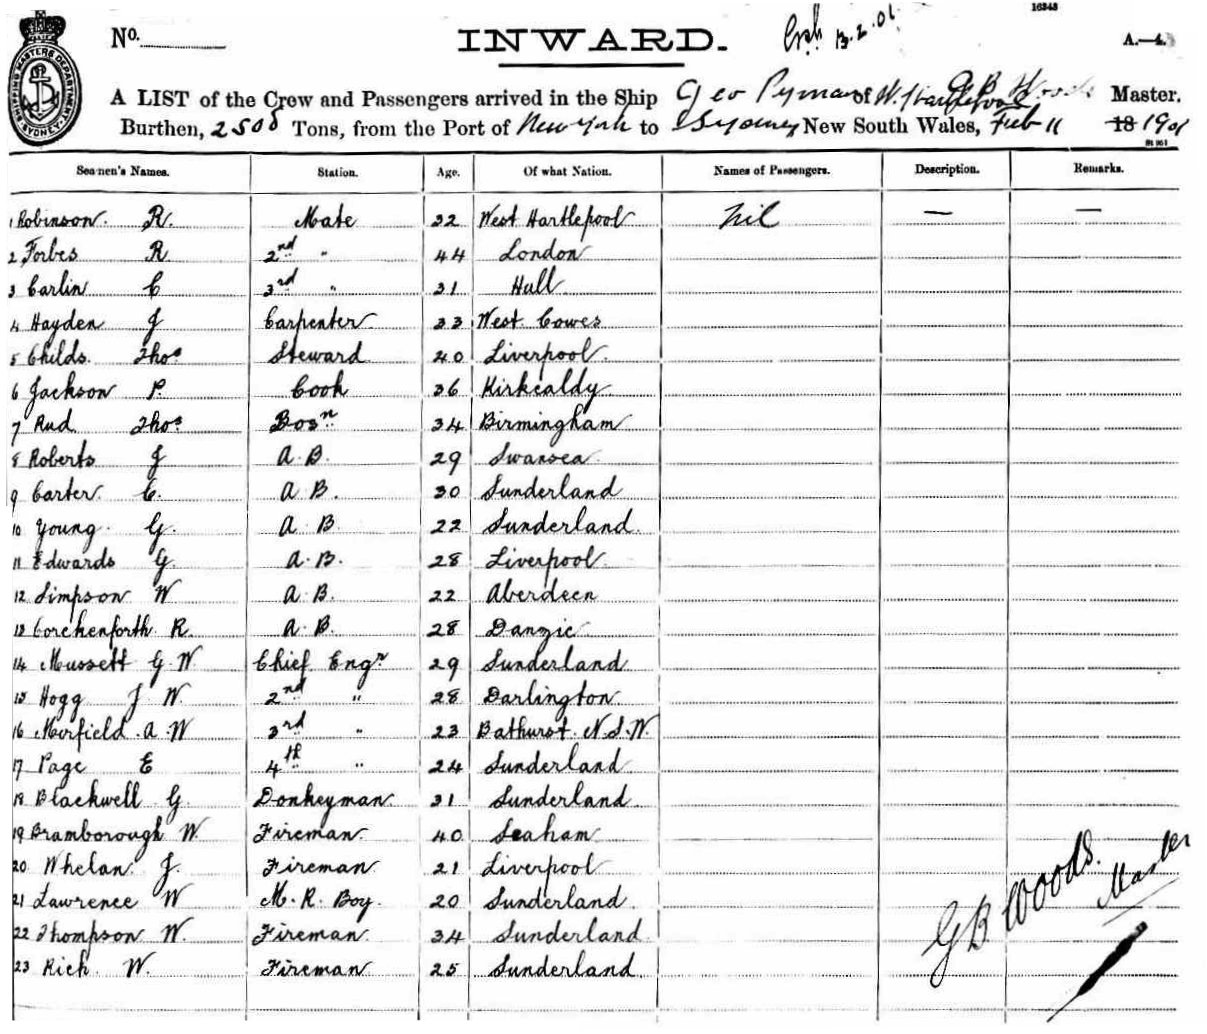 16348
No.
INWARD.
13.2.01.
A.—4.
SHIPPING MASTERS DEPARTMENT SYDNEY
A LIST of the Crew and Passengers arrived in the Ship Geo Pyman of W. Hartlepool G B Woods Master.
Burthen, 2500 Tons, from the Port of New York to Sydney New South Wales, Feb 11 18 1901
Seamen's Names. Station. Age. Of what Nation. Names of Passengers. Description. Remarks.
1 Robinson. R. Mate 32 West Hartlepool Nil — —
2 Forbes R 2nd " 44 London
3 Carlin C 3rd " 31 Hull
4 Hayden J Carpenter 33 West Cowes
5 Childs. Thos Steward 40 Liverpool
6 Jackson P. Cook 36 Kirkcaldy
7 Rud Thos Bosn 34 Birmingham
8 Roberts J A.B. 29 Swansea
9 Carter C. A B. 30 Sunderland
10 Young G. A B 22 Sunderland
11 Edwards G. A.B. 28 Liverpool
12 Simpson W A.B. 22 Aberdeen
13 Corckenforth R. A.B. 28 Danzic
14 Mussett G W. Chief Engr 29 Sunderland
15 Hogg J W. 2nd " 28 Darlington
16 Mirfield A W 3rd " 23 Bathurst N.S.W.
17 Page E 4th " 24 Sunderland
18 Blackwell G. Donkeyman 31 Sunderland
19 Bramborough W. Fireman 40 Seaham
20 Whelan J. Fireman 21 Liverpool
21 Lawrence W M.R. Boy. 20 Sunderland
22 Thompson W. Fireman 34 Sunderland
23 Rich W. Fireman 25 Sunderland
G B Woods. Master